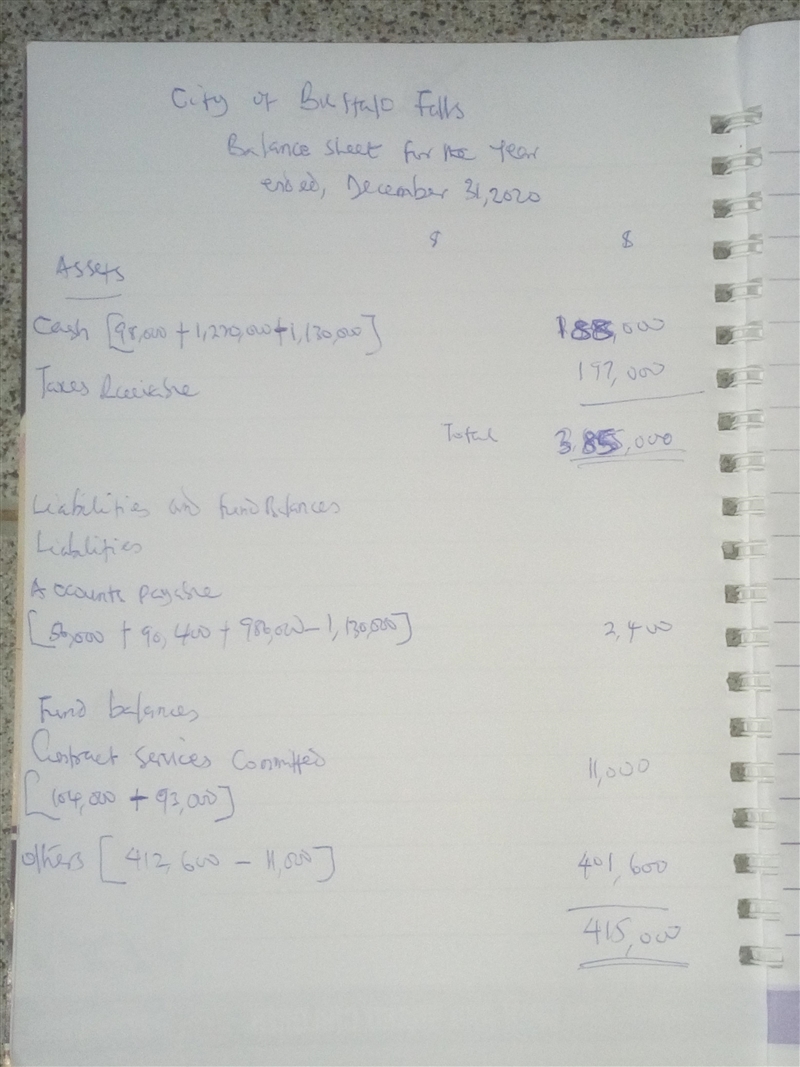 City of Buffalo Falls
Balance sheet for the Year
ended, December 31, 2020
$ $
Assets
Cash [98,000 + 1,220,000 + 1,130,000] 188,000
Taxes Receivable 197,000
Total 385,000
Liabilities and Fund Balances
Liabilities
Accounts payable
[56,000 + 90,400 + 986,000 - 1,130,000] 2,400
Fund balances
Contract services Committed 11,000
[104,000 + 93,000]
Others [412,600 - 11,000] 401,600
415,000